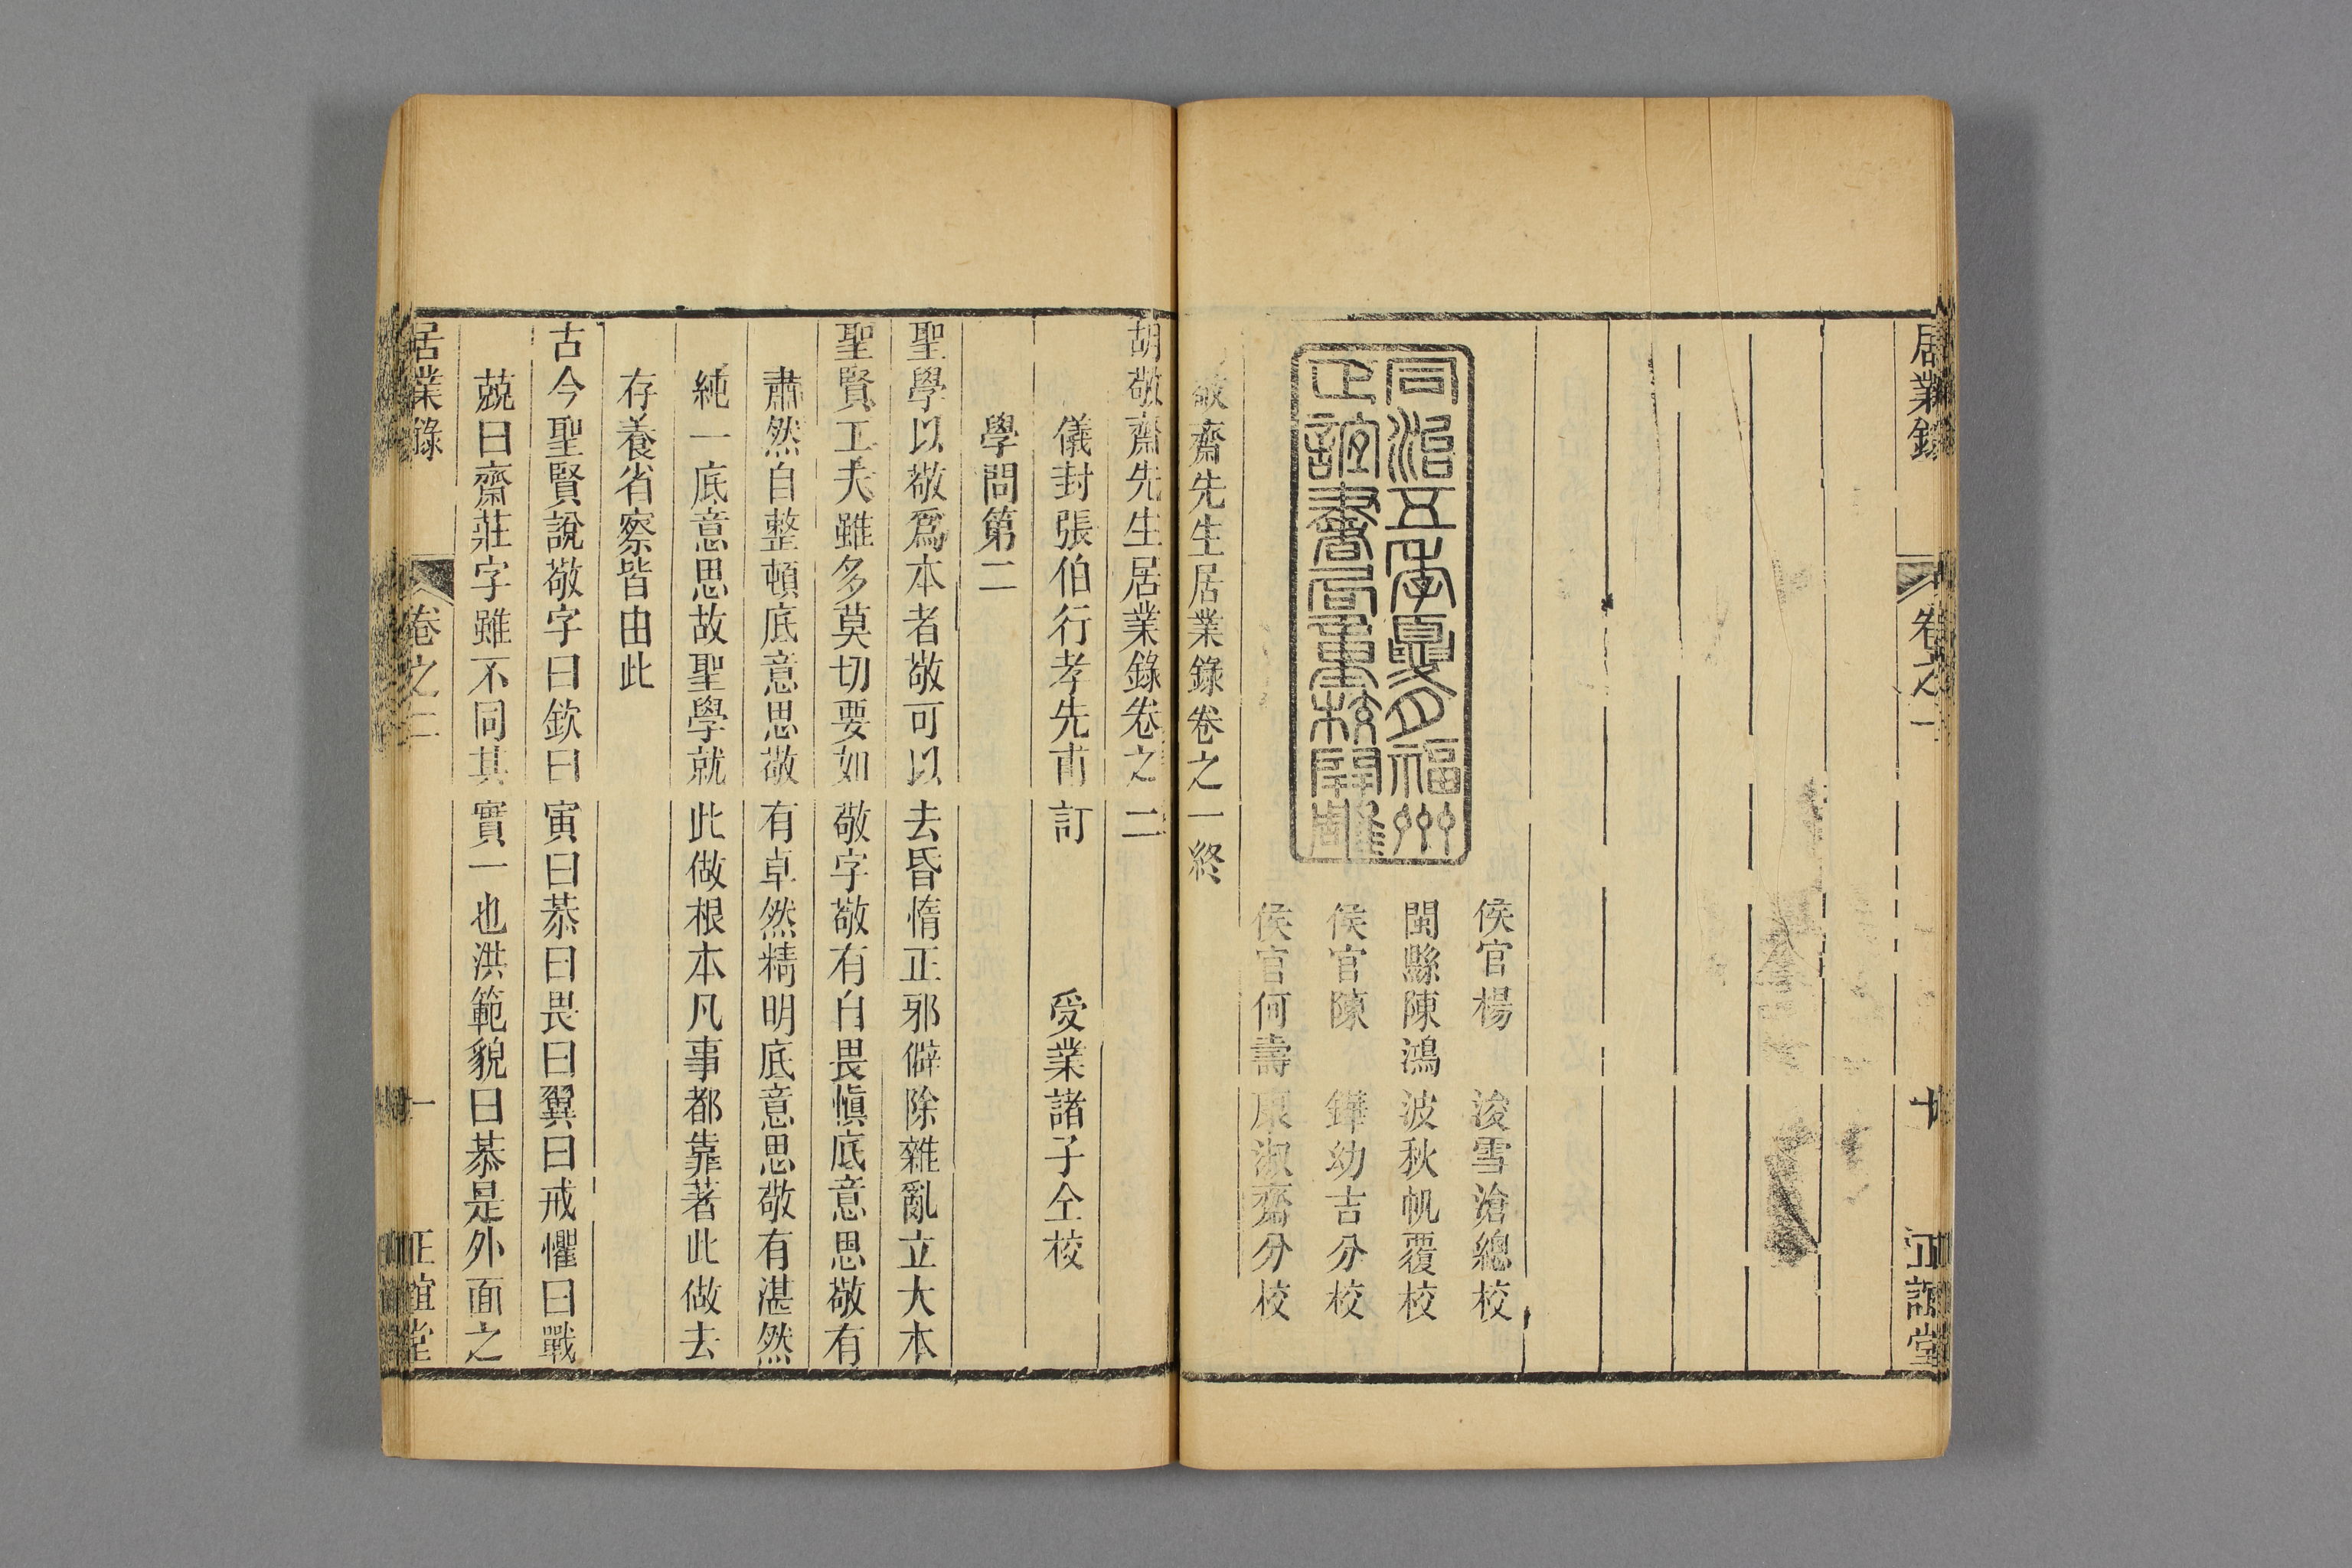 居業錄 卷之一 十 正誼堂
侯官楊 浚雪滄總校
閩縣陳鴻波秋帆覆校
侯官陳 鏵幼吉分校
侯官何壽康淑齋分校
同治五年夏月福州
正誼書局重校開雕
敬齋先生居業錄卷之一終
胡敬齋先生居業錄卷之二
儀封張伯行孝先甫訂 受業諸子仝校
學問第二
聖學以敬爲本者敬可以去昏惰正邪僻除雜亂立大本
聖賢工夫雖多莫切要如敬字敬有自畏愼底意思敬有
肅然自整頓底意思敬有卓然精明底意思敬有湛然
純一底意思故聖學就此做根本凡事都靠著此做去
存養省察皆由此
古今聖賢說敬字曰欽曰寅曰恭曰畏曰翼曰戒懼曰戰
兢曰齋莊字雖不同其實一也洪範貌曰恭是外面之
居業錄 卷之二 一 正誼堂